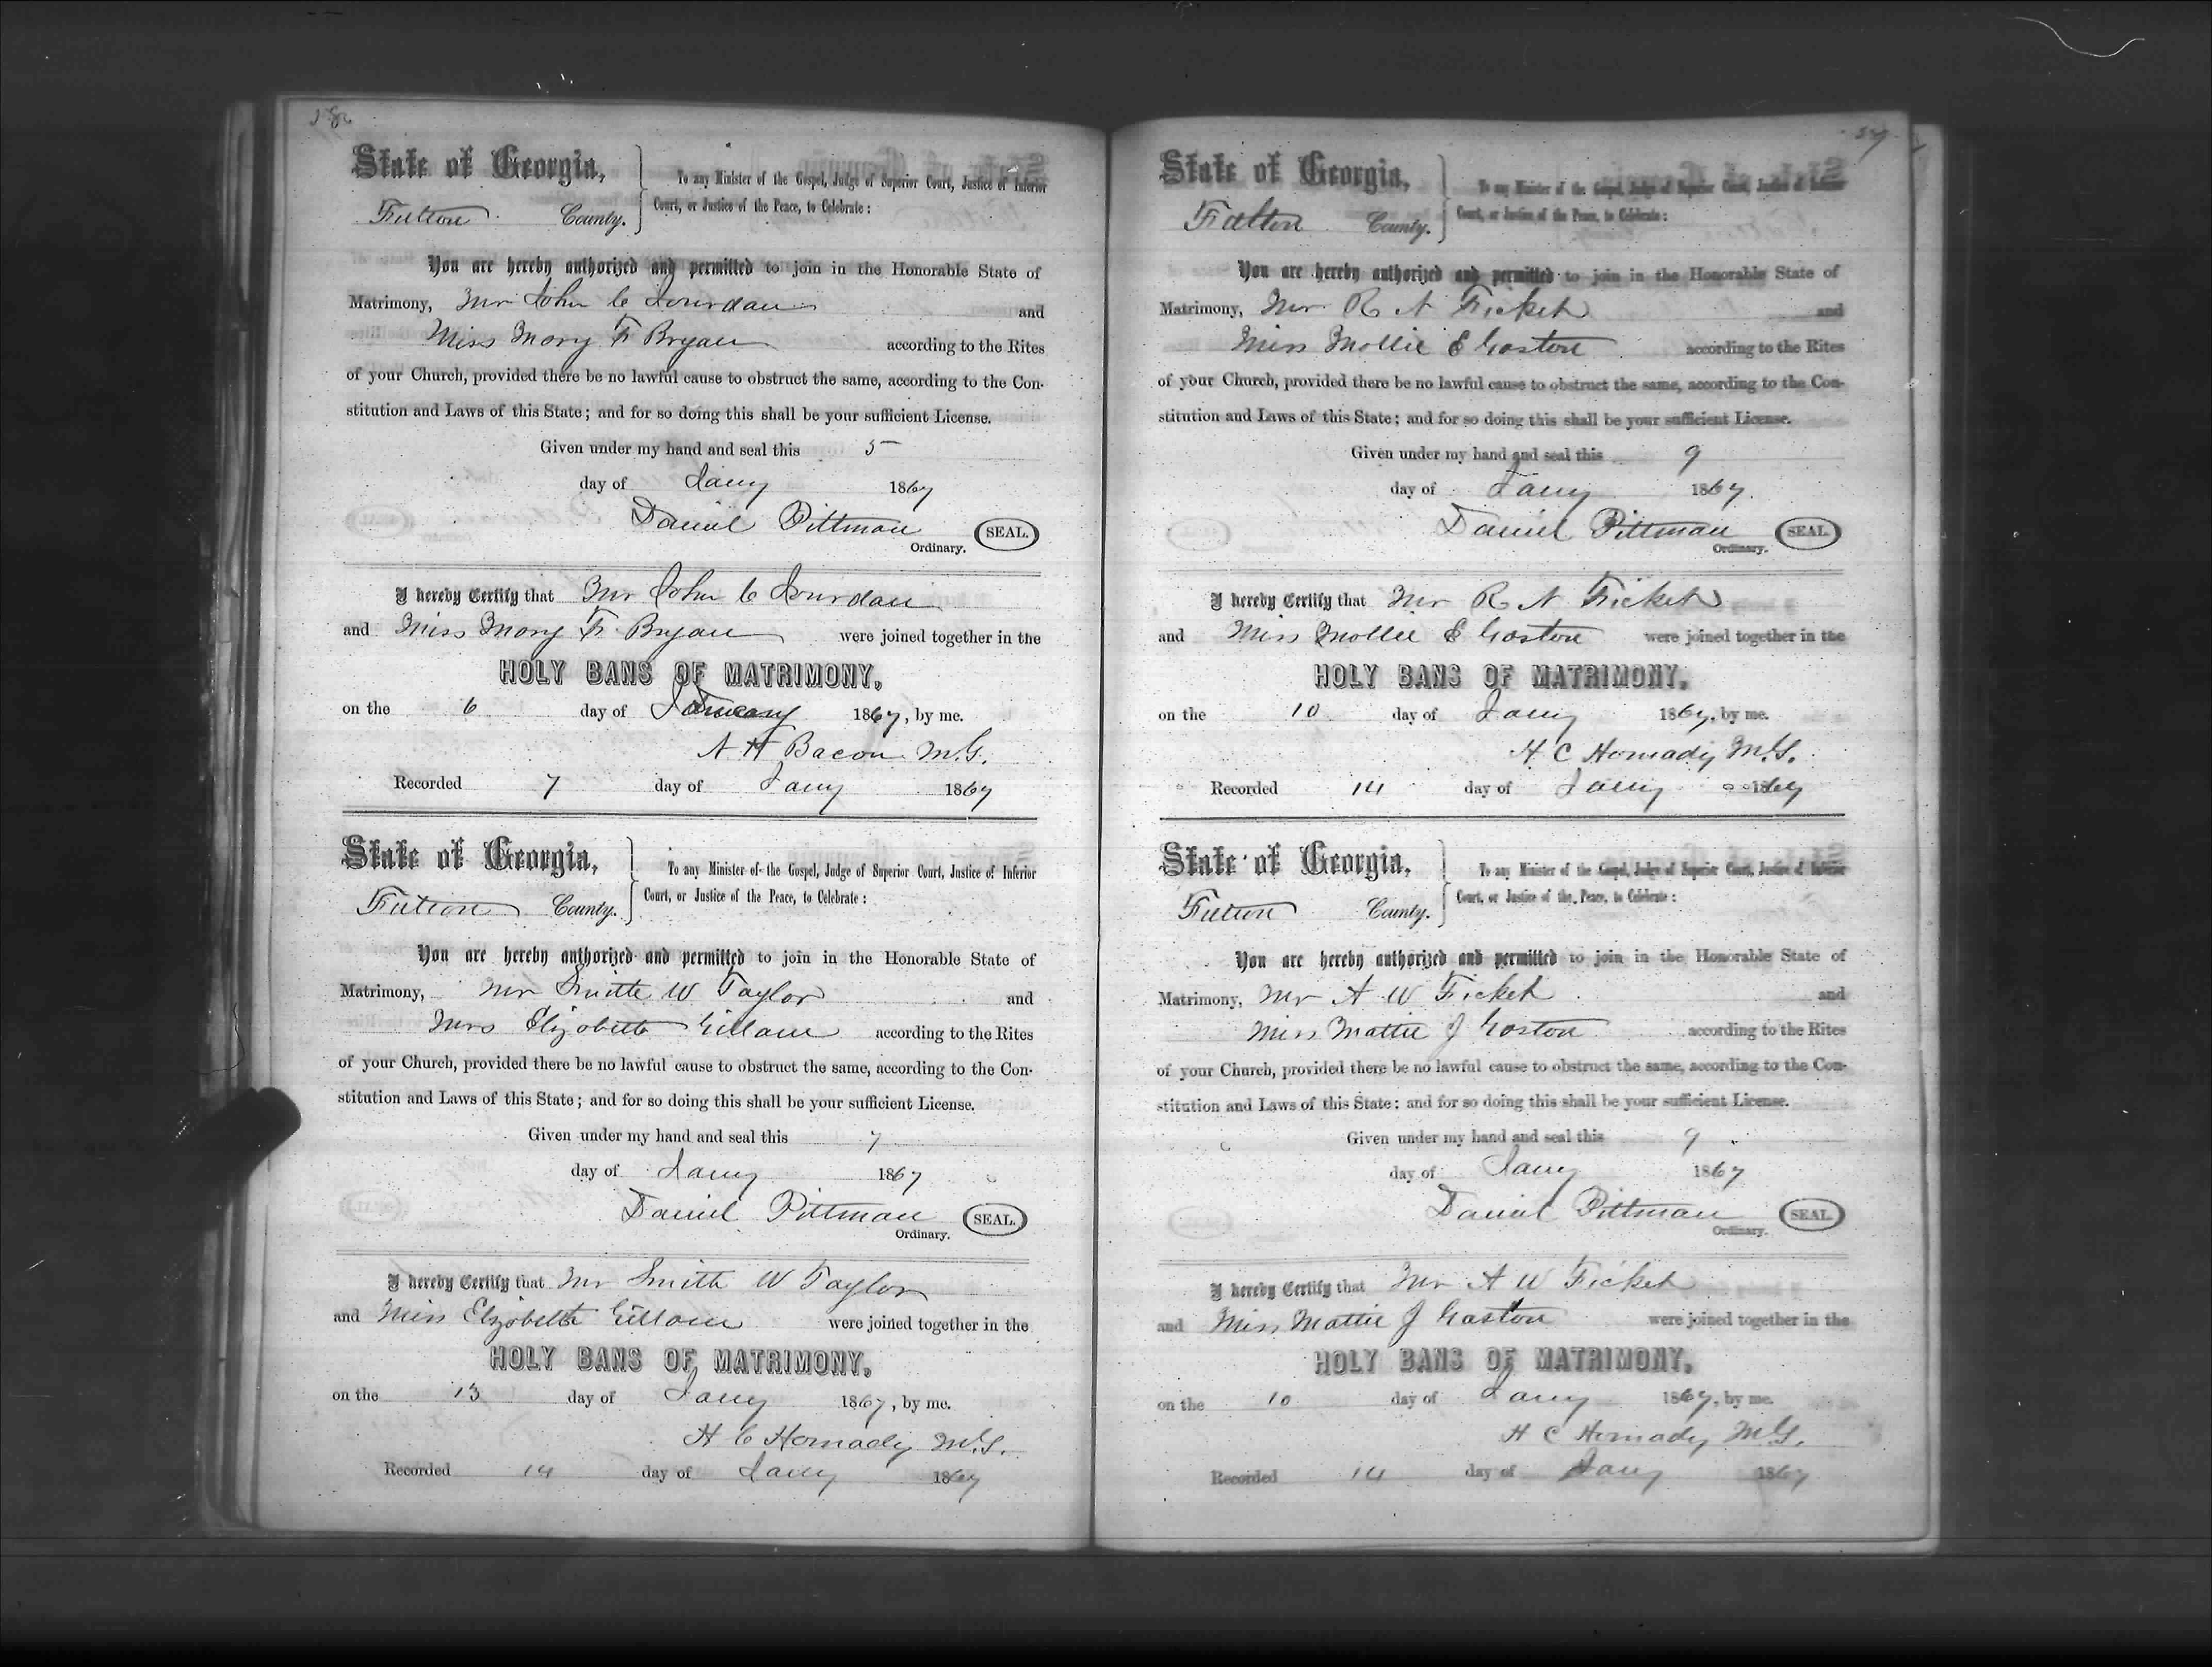 State of Georgia,
Fulton County.
To any Minister of the Gospel, Judge of Superior Court, Justice of Inferior
Court, or Justice of the Peace, to Celebrate:
You are hereby authorized and permitted to join in the Honorable State of
Matrimony, Mr John C Jourdan and
Miss Mary F Bryan according to the Rites
of your Church, provided there be no lawful cause to obstruct the same, according to the Con-
stitution and Laws of this State; and for so doing this shall be your sufficient License.
Given under my hand and seal this 5
day of Jany 1867
Daniel Pittman SEAL.
Ordinary.
I hereby Certify that Mr John C Jourdan
and Miss Mary F Bryan were joined together in the
HOLY BANS OF MATRIMONY,
on the 6 day of January 1867, by me.
A H Bacon M.G.
Recorded 7 day of Jany 1867
State of Georgia,
Fulton County.
To any Minister of the Gospel, Judge of Superior Court, Justice of Inferior
Court, or Justice of the Peace, to Celebrate:
You are hereby authorized and permitted to join in the Honorable State of
Matrimony, Mr Smith W Taylor and
Mrs Elizabeth Gillam according to the Rites
of your Church, provided there be no lawful cause to obstruct the same, according to the Con-
stitution and Laws of this State; and for so doing this shall be your sufficient License.
Given under my hand and seal this 7
day of Jany 1867
Daniel Pittman SEAL.
Ordinary.
I hereby Certify that Mr Smith W Taylor
and Miss Elizabeth Gillam were joined together in the
HOLY BANS OF MATRIMONY,
on the 13 day of Jany 1867, by me.
H C Hornady M.G.
Recorded 14 day of Jany 1867
State of Georgia,
Fulton County.
To any Minister of the Gospel, Judge of Superior Court, Justice of Inferior
Court, or Justice of the Peace, to Celebrate:
You are hereby authorized and permitted to join in the Honorable State of
Matrimony, Mr R N Ficket and
Miss Mollie E Gaston according to the Rites
of your Church, provided there be no lawful cause to obstruct the same, according to the Con-
stitution and Laws of this State; and for so doing this shall be your sufficient License.
Given under my hand and seal this 9
day of Jany 1867.
Daniel Pittman SEAL.
Ordinary.
I hereby Certify that Mr R N Ficket
and Miss Mollie E Gaston were joined together in the
HOLY BANS OF MATRIMONY,
on the 10 day of Jany 1867, by me.
H C Hornady M.G.
Recorded 14 day of Jany 1867
State of Georgia,
Fulton County.
To any Minister of the Gospel, Judge of Superior Court, Justice of Inferior
Court, or Justice of the Peace, to Celebrate:
You are hereby authorized and permitted to join in the Honorable State of
Matrimony, Mr A W Ficket and
Miss Mattie J Gaston according to the Rites
of your Church, provided there be no lawful cause to obstruct the same, according to the Con-
stitution and Laws of this State; and for so doing this shall be your sufficient License.
Given under my hand and seal this 9
day of Jany 1867
Daniel Pittman SEAL.
Ordinary.
I hereby Certify that Mr A W Ficket
and Miss Mattie J Gaston were joined together in the
HOLY BANS OF MATRIMONY,
on the 10 day of Jany 1867, by me.
H C Hornady M.G.
Recorded 14 day of Jany 1867